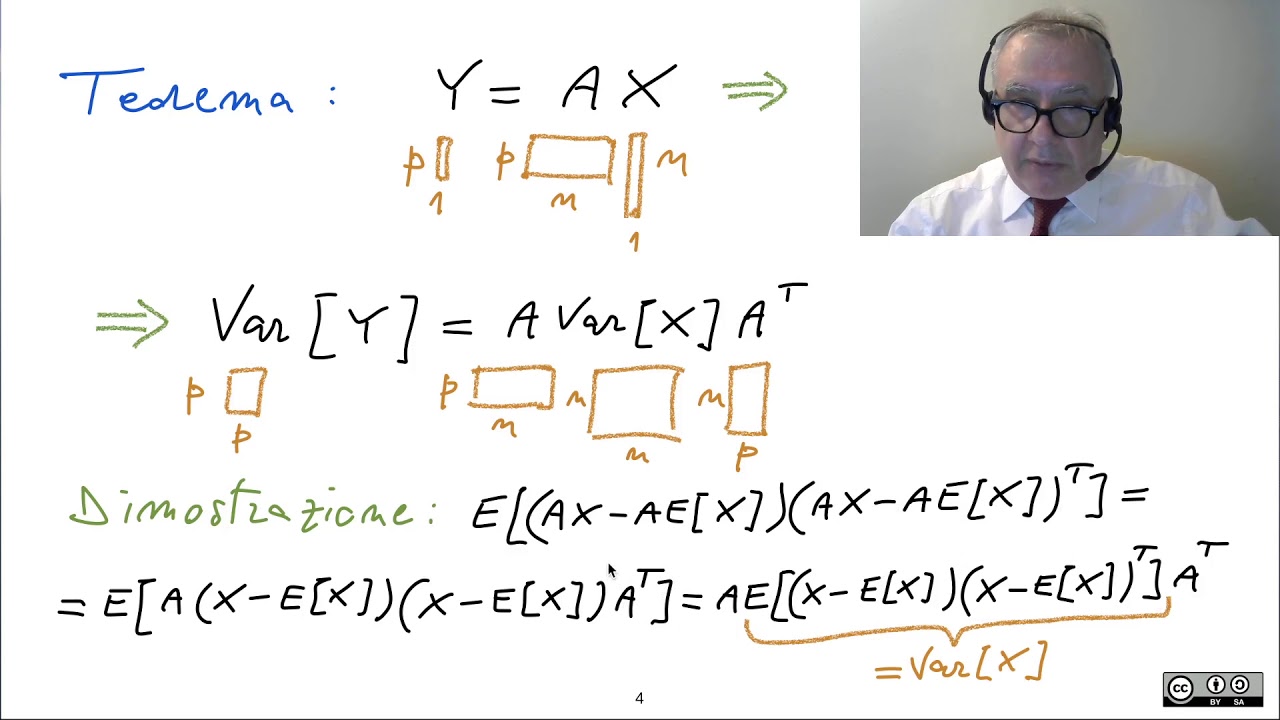 Teorema : Y = A X ⇒
p p n
1 n 1
⇒ Var [Y] = A Var[X] Aᵀ
p p n n
p n n p
Dimostrazione: E[(AX-AE[X])(AX-AE[X])ᵀ] =
= E[A(X-E[X])(X-E[X])Aᵀ] = AE[(X-E[X])(X-E[X])ᵀ]Aᵀ
= Var[X]
4
CC BY SA